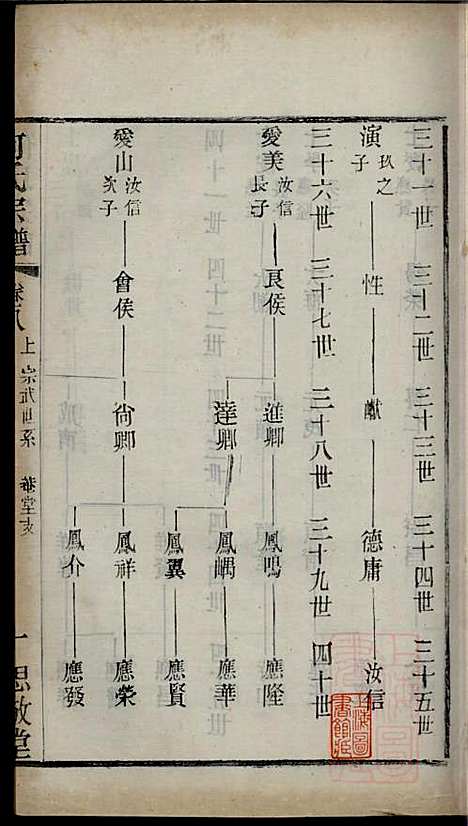 三十一世 三十二世 三十三世 三十四世 三十五世
演 玖之子 性 猷 德庸 汝信
三十六世 三十七世 三十八世 三十九世 四十世
愛美 汝信長子 良侯 進卿 鳳鳴 應隆
達卿 鳳嵎 應華
鳳翼 應賢
愛山 汝信次子 會侯 尙卿 鳳祥 應榮
鳳介 應發
何氏宗譜 卷八 上 宗武世系 堂支 一 思敬堂
上海圖書館藏